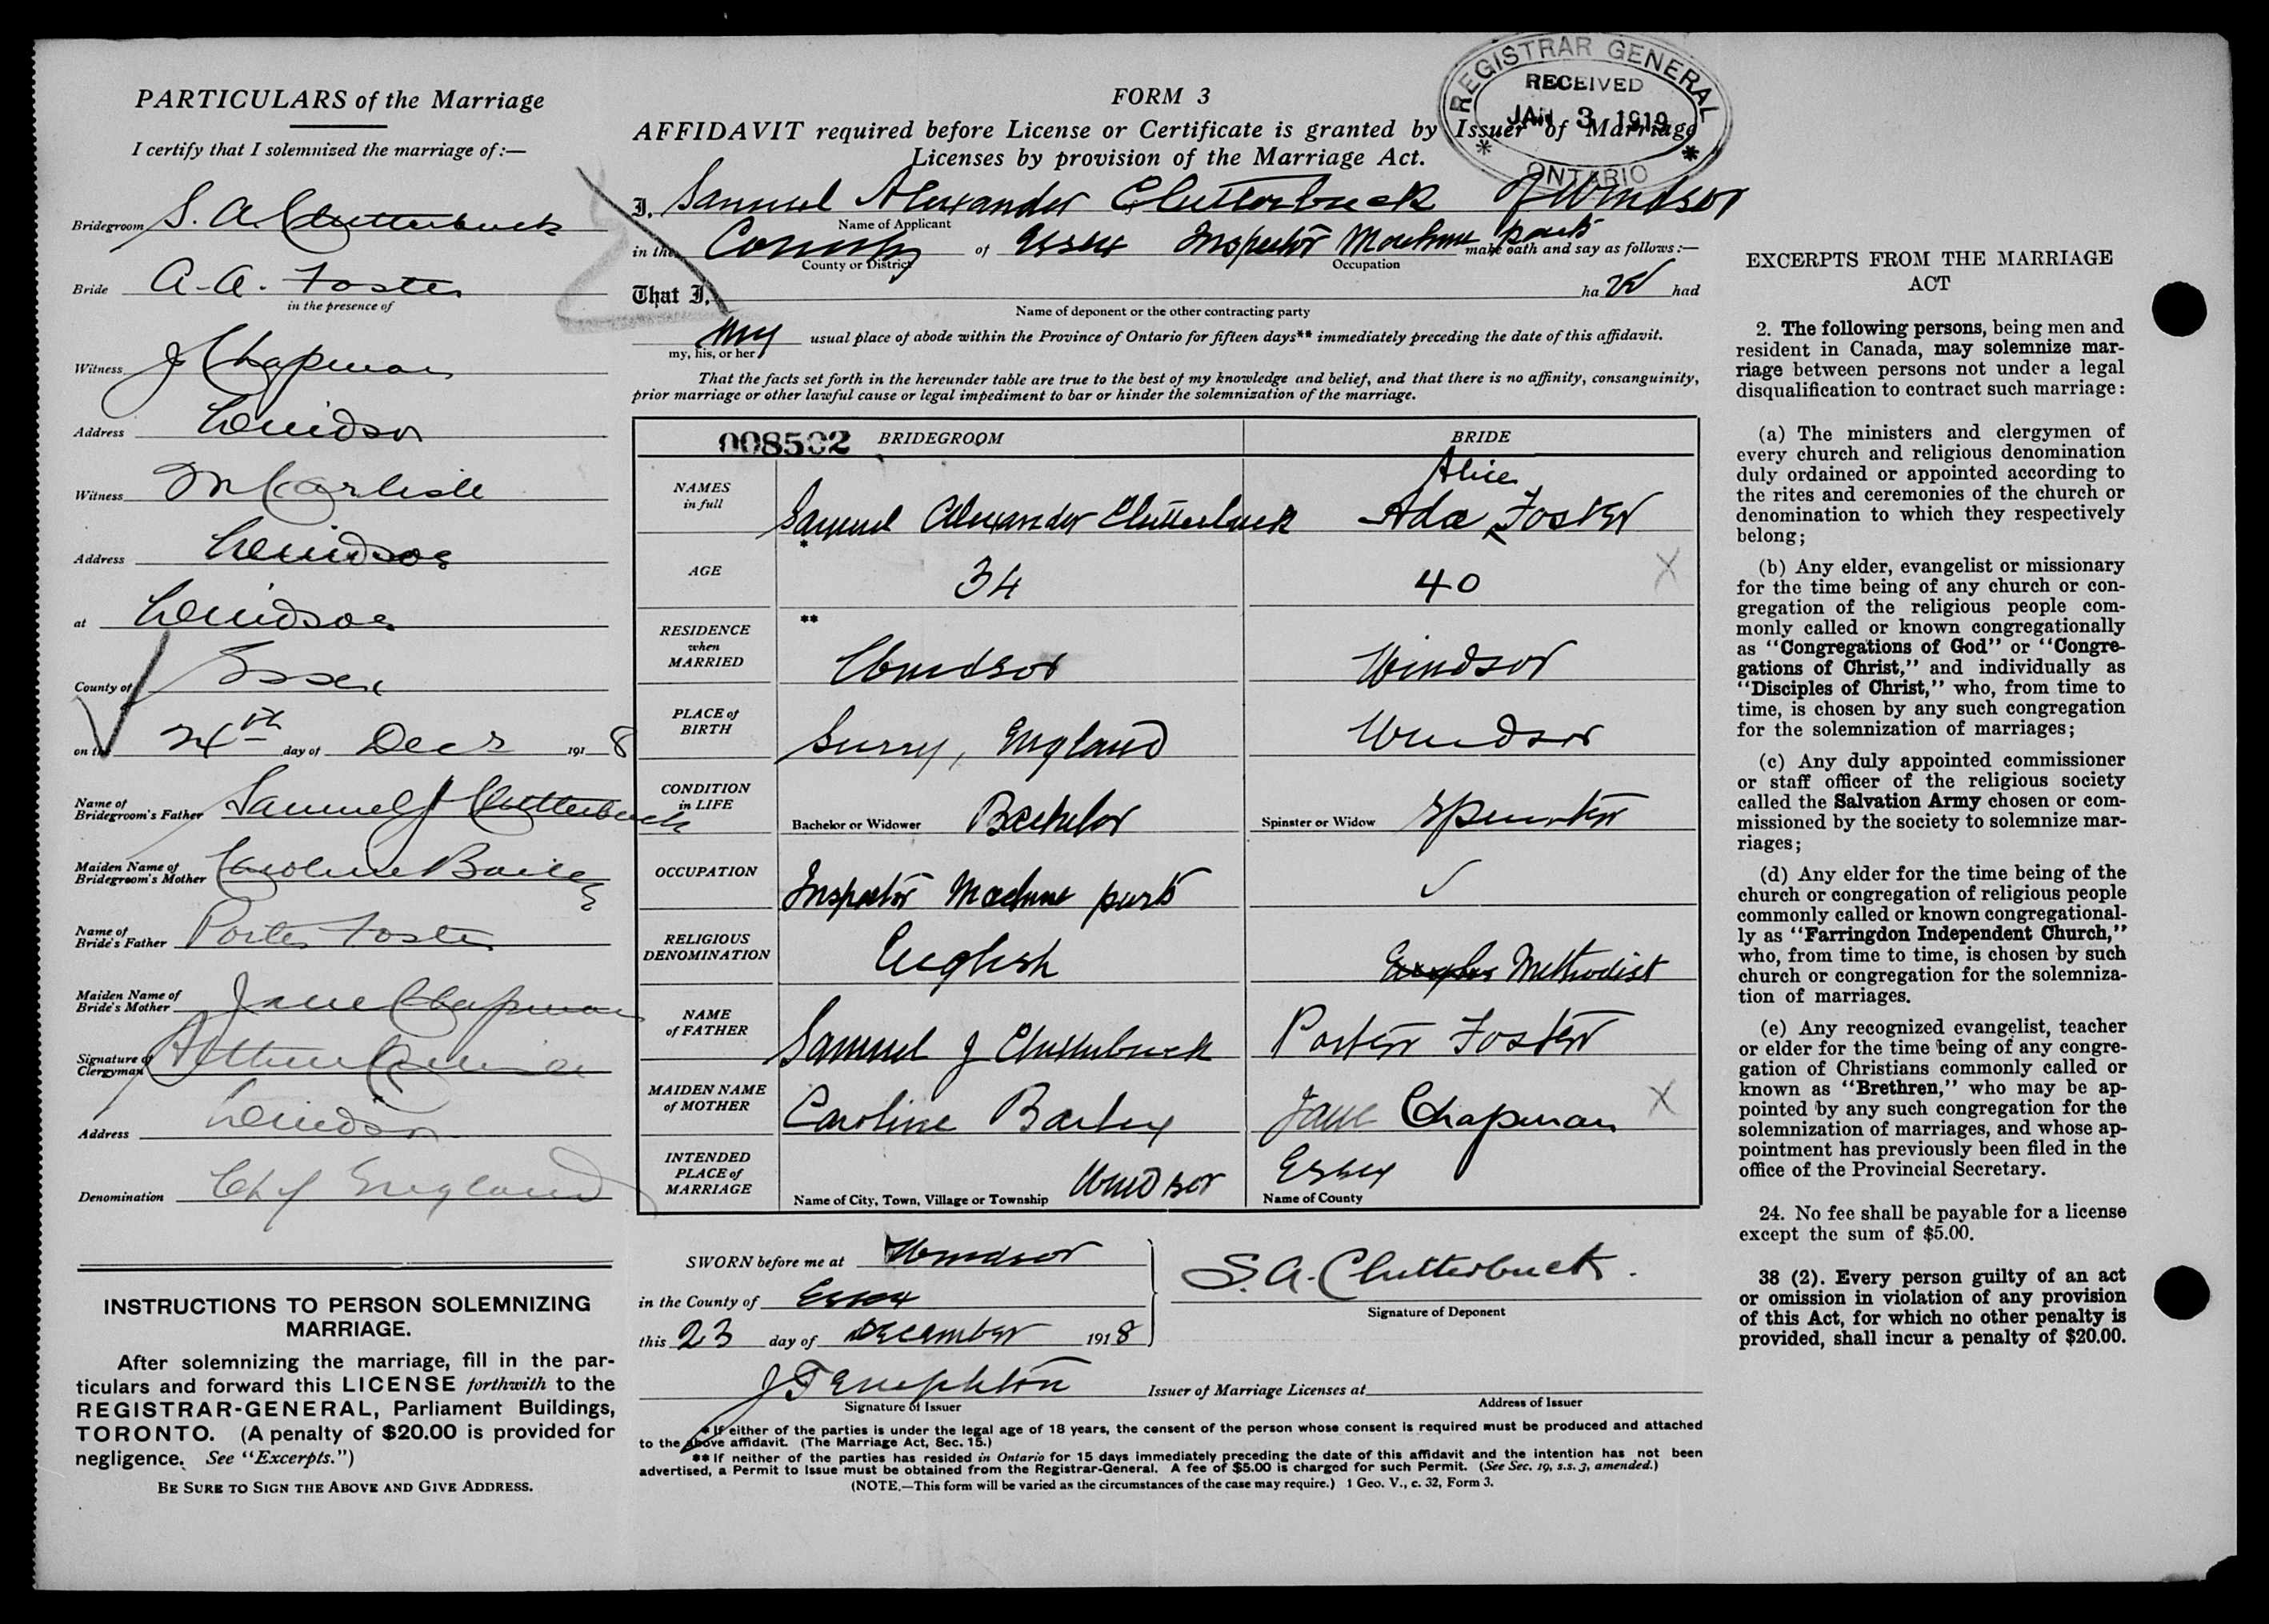 PARTICULARS of the Marriage
I certify that I solemnized the marriage of:—
Bridegroom S. A. Clutterbuck
Bride A. A. Foster
in the presence of
Witness J Chapman
Address Windsor
Witness M Carlisle
Address Windsor
at Windsor
County of Essex
on the 24th day of Decr 1918
Name of Bridegroom's Father Samuel J Clutterbuck
Maiden Name of Bridegroom's Mother Caroline Bailey
Name of Bride's Father Porter Foster
Maiden Name of Bride's Mother Jane Chapman
Signature of Clergyman Arthur
Address Windsor
Denomination Ch of England
INSTRUCTIONS TO PERSON SOLEMNIZING
MARRIAGE.
After solemnizing the marriage, fill in the par-
ticulars and forward this LICENSE forthwith to the
REGISTRAR-GENERAL, Parliament Buildings,
TORONTO. (A penalty of $20.00 is provided for
negligence. See "Excerpts.")
BE SURE TO SIGN THE ABOVE AND GIVE ADDRESS.
FORM 3
REGISTRAR GENERAL
RECEIVED
JAN 3 1919
ONTARIO
AFFIDAVIT required before License or Certificate is granted by Issuer of Marriage
Licenses by provision of the Marriage Act.
I, Samuel Alexander Clutterbuck of Windsor
Name of Applicant
in the County of Essex Inspector Machine parts make oath and say as follows:—
County or District Occupation
That I, ha ve had
Name of deponent or the other contracting party
my usual place of abode within the Province of Ontario for fifteen days** immediately preceding the date of this affidavit.
my, his, or her
That the facts set forth in the hereunder table are true to the best of my knowledge and belief, and that there is no affinity, consanguinity,
prior marriage or other lawful cause or legal impediment to bar or hinder the solemnization of the marriage.
008502 BRIDEGROOM BRIDE
NAMES in full Samuel Alexander Clutterbuck Ada Alice Foster
AGE * 34 40 X
RESIDENCE when MARRIED ** Windsor Windsor
PLACE of BIRTH Surry, England Windsor
CONDITION in LIFE Bachelor or Widower Bachelor Spinster or Widow Spinster
OCCUPATION Inspector Machine parts ✓
RELIGIOUS DENOMINATION English Methodist
NAME of FATHER Samuel J Clutterbuck Porter Foster
MAIDEN NAME of MOTHER Caroline Bailey Jane Chapman X
INTENDED PLACE of MARRIAGE Windsor Essex
Name of City, Town, Village or Township Name of County
SWORN before me at Windsor
in the County of Essex
this 23 day of December 1918
S. A. Clutterbuck.
Signature of Deponent
Issuer of Marriage Licenses at
Signature of Issuer Address of Issuer
* If either of the parties is under the legal age of 18 years, the consent of the person whose consent is required must be produced and attached
to the above affidavit. (The Marriage Act, Sec. 15.)
** If neither of the parties has resided in Ontario for 15 days immediately preceding the date of this affidavit and the intention has not been
advertised, a Permit to Issue must be obtained from the Registrar-General. A fee of $5.00 is charged for such Permit. (See Sec. 19, s.s. 3, amended.)
(NOTE.—This form will be varied as the circumstances of the case may require.) 1 Geo. V., c. 32, Form 3.
EXCERPTS FROM THE MARRIAGE
ACT
2. The following persons, being men and
resident in Canada, may solemnize mar-
riage between persons not under a legal
disqualification to contract such marriage:
(a) The ministers and clergymen of
every church and religious denomination
duly ordained or appointed according to
the rites and ceremonies of the church or
denomination to which they respectively
belong;
(b) Any elder, evangelist or missionary
for the time being of any church or con-
gregation of the religious people com-
monly called or known congregationally
as "Congregations of God" or "Congre-
gations of Christ," and individually as
"Disciples of Christ," who, from time to
time, is chosen by any such congregation
for the solemnization of marriages;
(c) Any duly appointed commissioner
or staff officer of the religious society
called the Salvation Army chosen or com-
missioned by the society to solemnize mar-
riages;
(d) Any elder for the time being of the
church or congregation of religious people
commonly called or known congregational-
ly as "Farringdon Independent Church,"
who, from time to time, is chosen by such
church or congregation for the solemniza-
tion of marriages.
(e) Any recognized evangelist, teacher
or elder for the time being of any congre-
gation of Christians commonly called or
known as "Brethren," who may be ap-
pointed by any such congregation for the
solemnization of marriages, and whose ap-
pointment has previously been filed in the
office of the Provincial Secretary.
24. No fee shall be payable for a license
except the sum of $5.00.
38 (2). Every person guilty of an act
or omission in violation of any provision
of this Act, for which no other penalty is
provided, shall incur a penalty of $20.00.